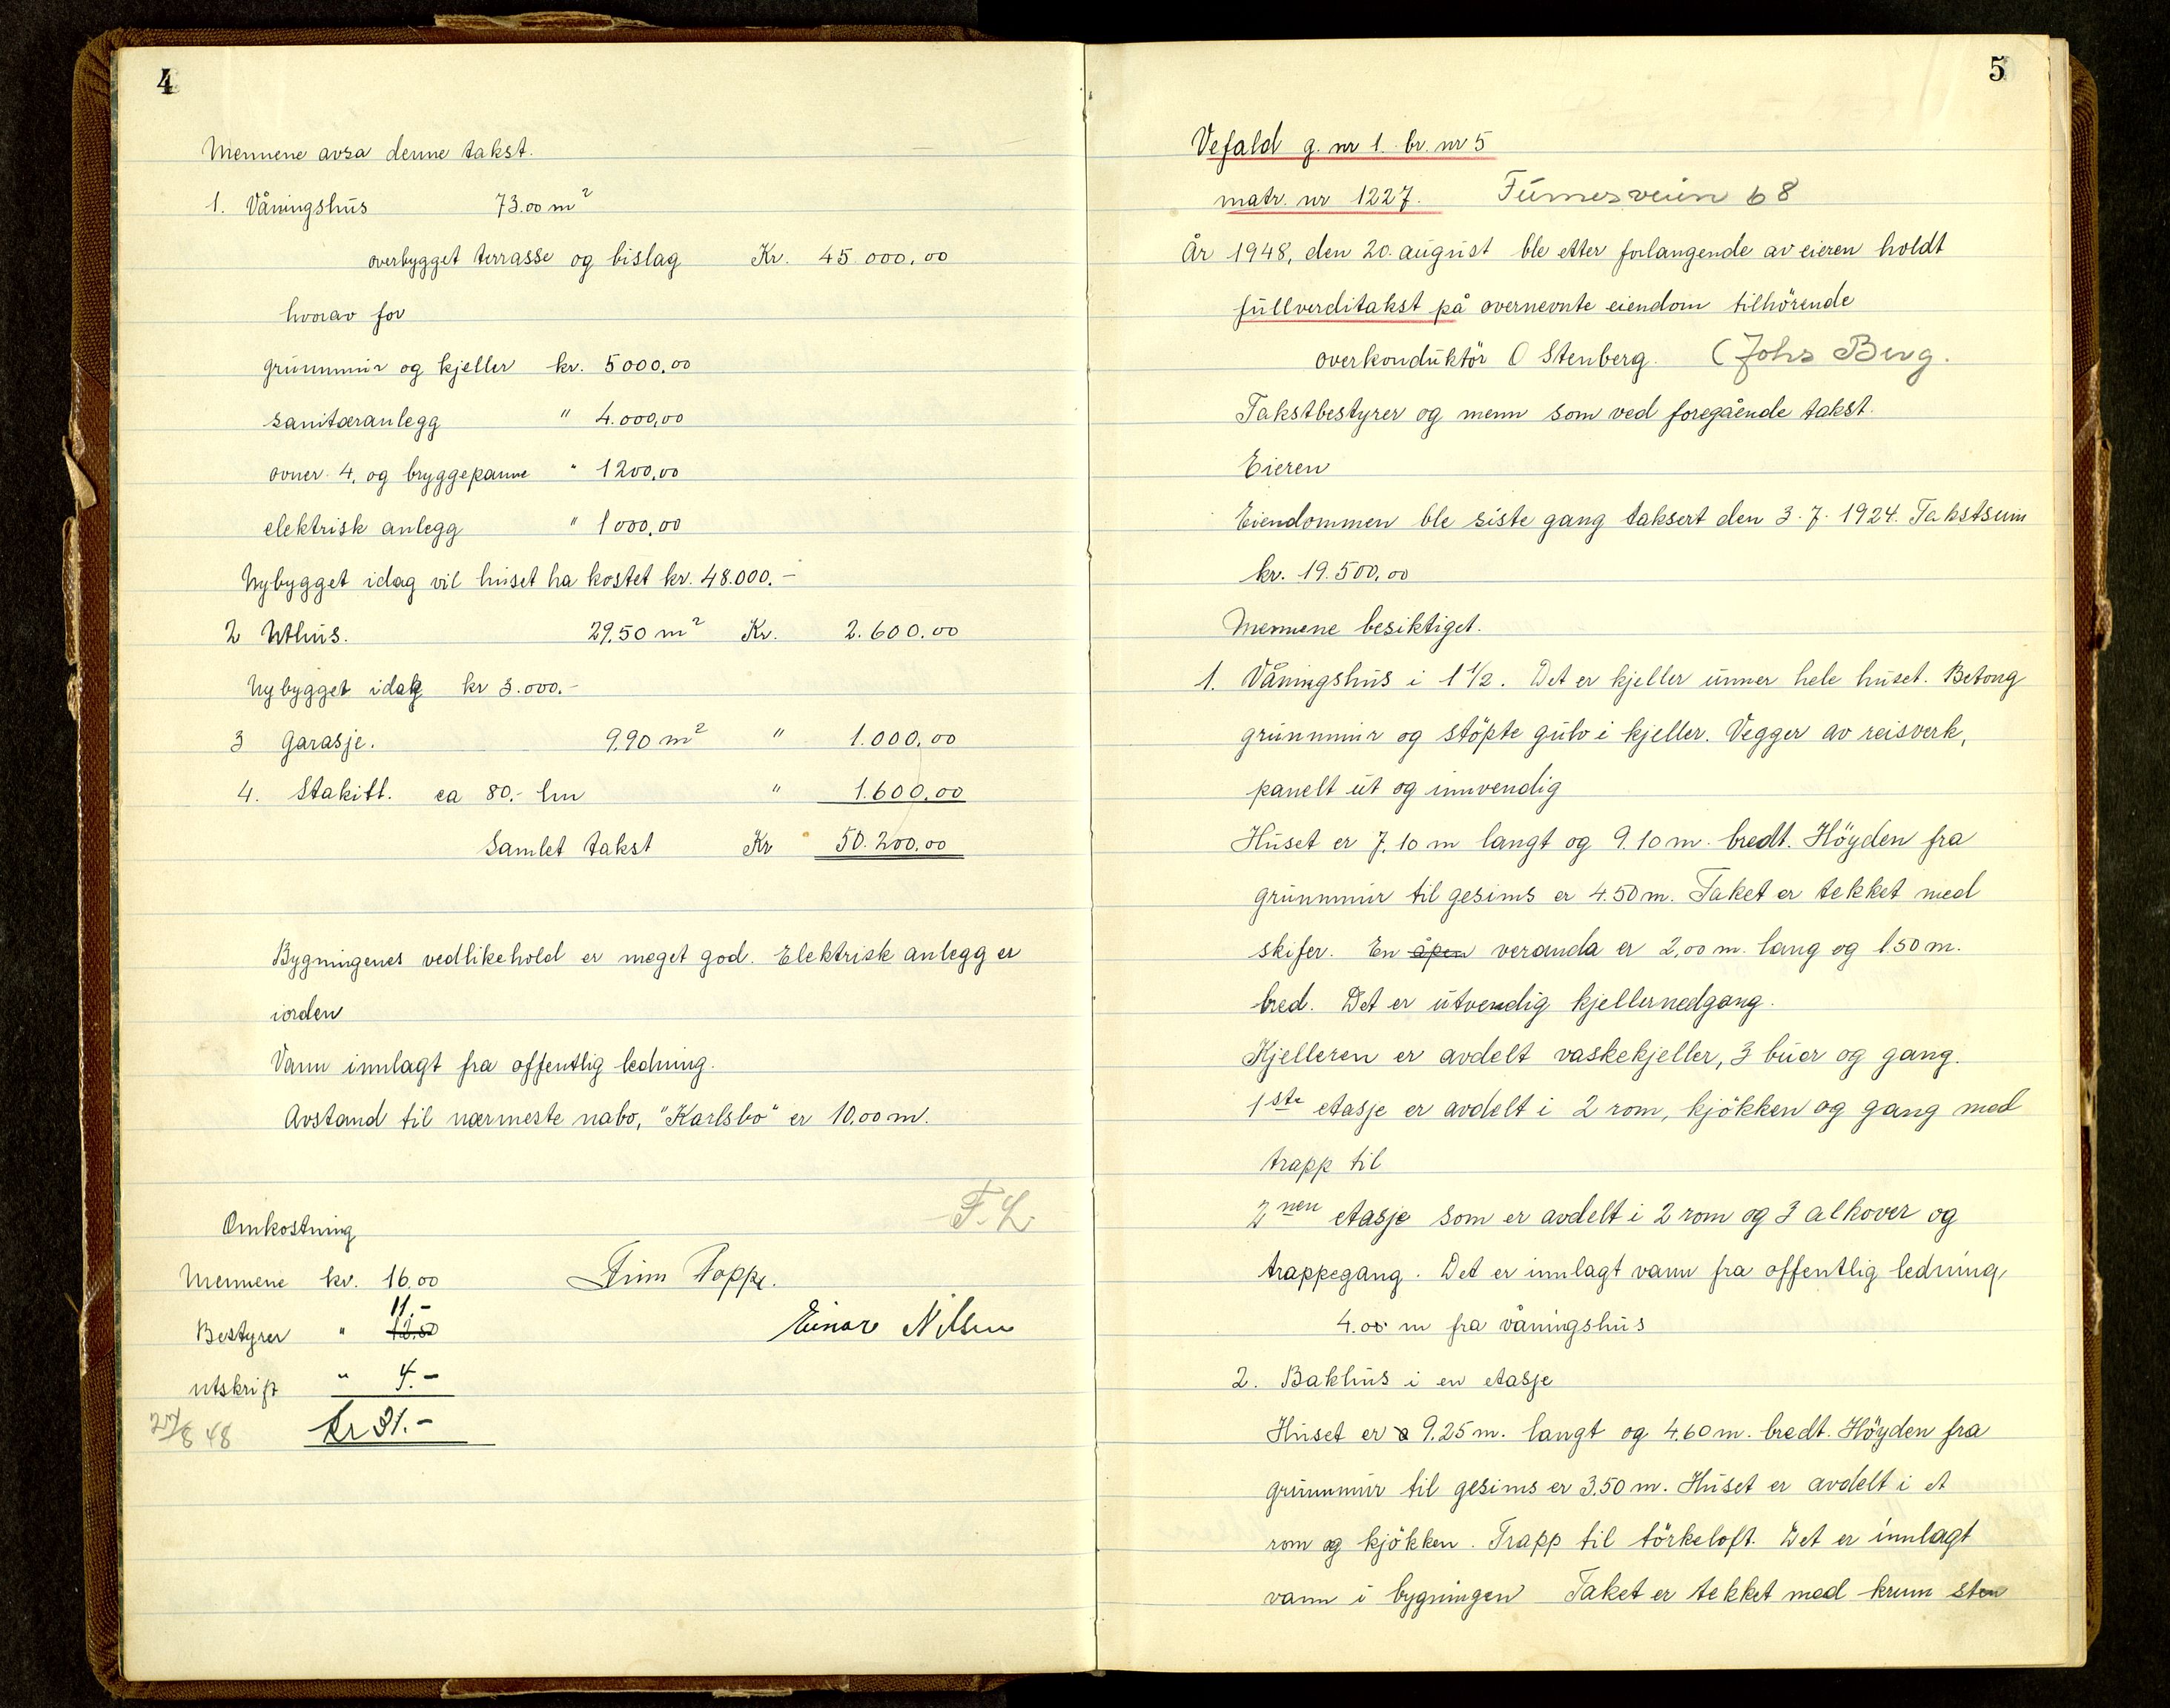 4
Mennene avsa denne takst.
1. Våningshus 73.00 m²
overbygget terrasse og bislag Kr. 45.000,00
hvorav for
grunnmur og kjeller kr. 5000,00
sanitæranlegg " 4.000,00
ovner 4, og bryggepanne " 1200,00
elektrisk anlegg " 1000,00
Nybygget idag vil huset ha kostet kr. 48.000.-
2 Uthus. 29.50 m² Kr. 2.600.00
Nybygget idag kr 3.000.-
3 Garasje. 9.90 m² " 1.000,00
4. Stakitt. ca 80.- lm " 1.600,00
Samlet takst Kr 50.200.00
Bygningenes vedlikehold er meget god. Elektrisk anlegg er
iorden
Vann innlagt fra offentlig ledning.
Avstand til nærmeste nabo, "Karlsbo" er 10,00 m.
F. L.
Omkostning
Mennene kr. 16.00
Finn Poppe.
11.-
Bestyrer " 12.50
Einar Nilsen
utskrift " 4.-
27/8 48 kr 31.-
5
Vefald g. nr 1. br. nr 5
matr. nr 1227. Furnesveien 68
År 1948, den 20. august ble etter forlangende av eieren holdt
fullverditakst på overnevnte eiendom tilhörende
overkonduktör O Stenberg. (Johs Berg.
Takstbestyrer og menn som ved foregående takst.
Eieren
Eiendommen ble siste gang taksert den 3.7.1924. Takstsum
kr. 19.500,00
Mennene besiktiget.
1. Våningshus i 1 1/2. Det er kjeller unner hele huset. Betong
grunnmur og stöpte gulv i kjeller. Vegger av reisverk,
panelt ut og innvendig
Huset er 7,10 m langt og 9.10 m. bredt. Höyden fra
grunnmur til gesims er 4.50 m. Taket er tekket med
skifer. En åpen veranda er 2,00 m. lang og 1.50 m.
bred. Det er utvendig kjellernedgang.
Kjelleren er avdelt vaskekjeller, 3 buer og gang.
1ste etasje er avdelt i 2 rom, kjökken og gang med
trapp til
2nen etasje som er avdelt i 2 rom og 3 alkover og
trappegang. Det er innlagt vann fra offentlig ledning,
4.00 m fra våningshus
2. Bakhus i en etasje
Huset er 9.25 m. langt og 4.60 m. bredt. Höyden fra
grunnmur til gesims er 3.50 m. Huset er avdelt i et
rom og kjökken. Trapp til törkeloft. Det er innlagt
vann i bygningen Taket er tekket med krum sten